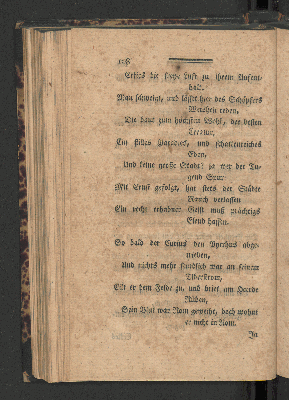 128
die freye Luft zu ihrem Aufent-
halt.
Man schweigt, und lässet hier des Schöpfers
Weisheit reden,
Die ganz zum höchsten Wohl, der besten
Creatur,
Ein stilles und schattenreiches
Eden,
Und keine große Stadt! zu der Tu-
gend Spur.
Mit Ernst gefolgt, hat stets der Städte
Rauch verlassen
Ein recht erhabner Geist muß prächtigs
Elend hassen.
So bald der Curius den Pyrrhus abge-
trieben,
Und nichts mehr feindlich war an seinem
Tiberstrom,
Eilt er dem Felde zu, und briet am Heerde
Rüben,
Sein Blut war Rom geweiht, doch wohnt
er nicht in Rom.
In